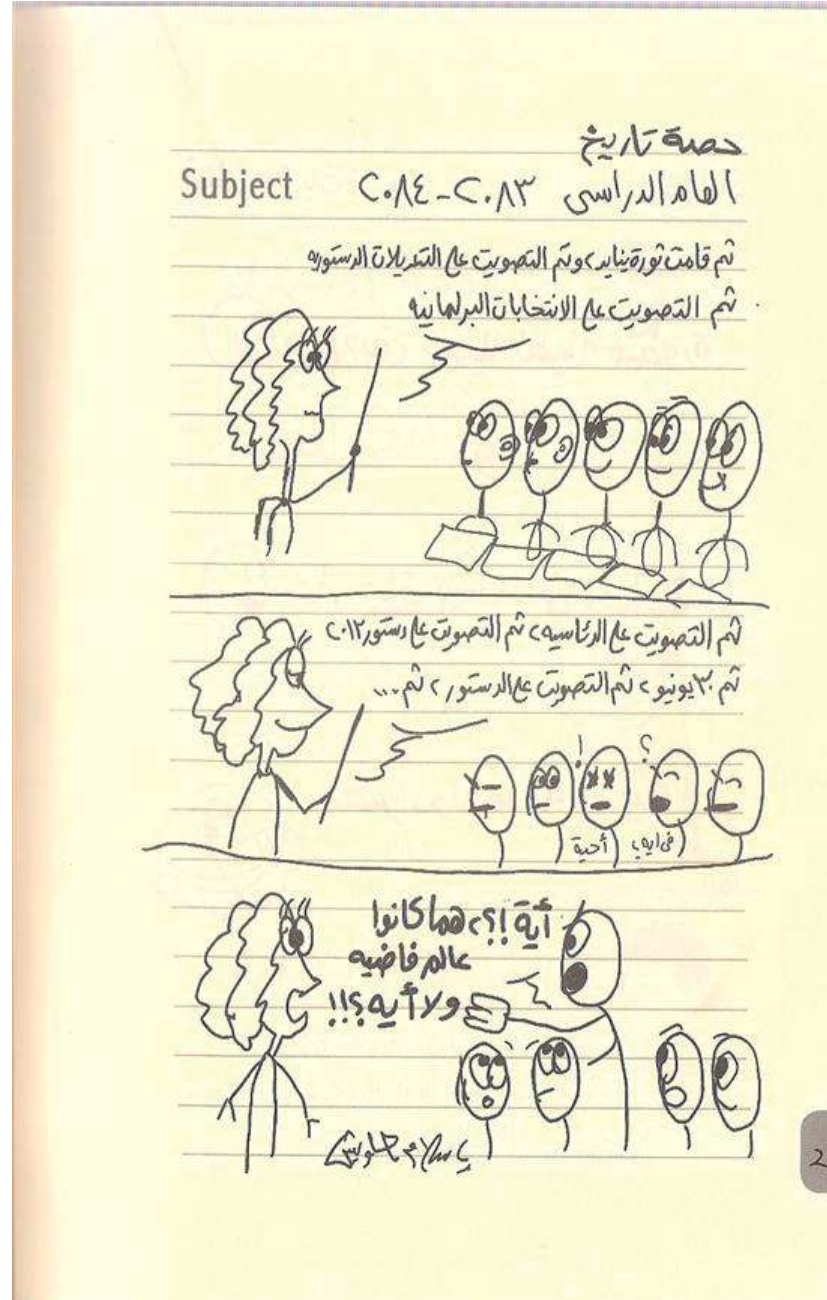 حصة تاريخ
Subject العام الدراسى ٢٠٨٣-٢٠٨٤
ثم قامت ثورة يناير، وتم التصويت على التعديلات الدستوريه
ثم التصويت على الانتخابات البرلمانيه
ثم التصويت على الرئاسيه، ثم التصويت على دستور ٢٠١٢
ثم ٣٠ يونيو، ثم التصويت على الدستور، ثم...
! ؟
أحية فى ايه؟
أية!؟، هما كانوا
عالم فاضيه
ولا أيه؟!!
2